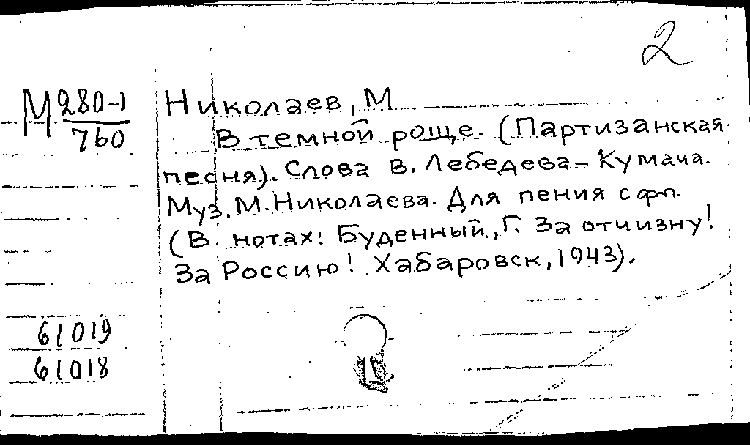 2
М 280-1
760
Николаев, М
В темной роще. (Партизанская
песня). Слова В. Лебедева-Кумача.
Муз. М. Николаева. Для пения с фп.
(В нотах: Буденный, Г. За отчизну!
За Россию! Хабаровск, 1943).
61019
61018